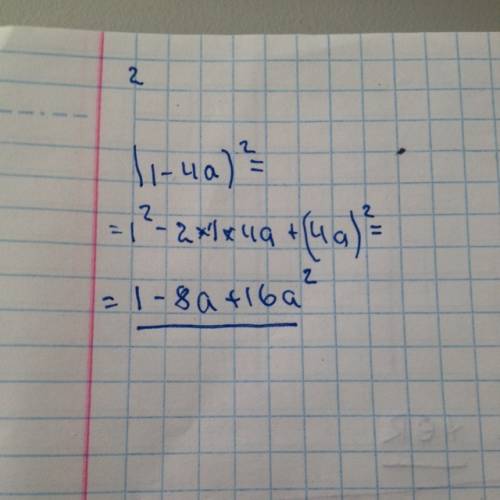 2
(1-4a)²=
=1²-2×1×4a+(4a)²=
=1-8a+16a²